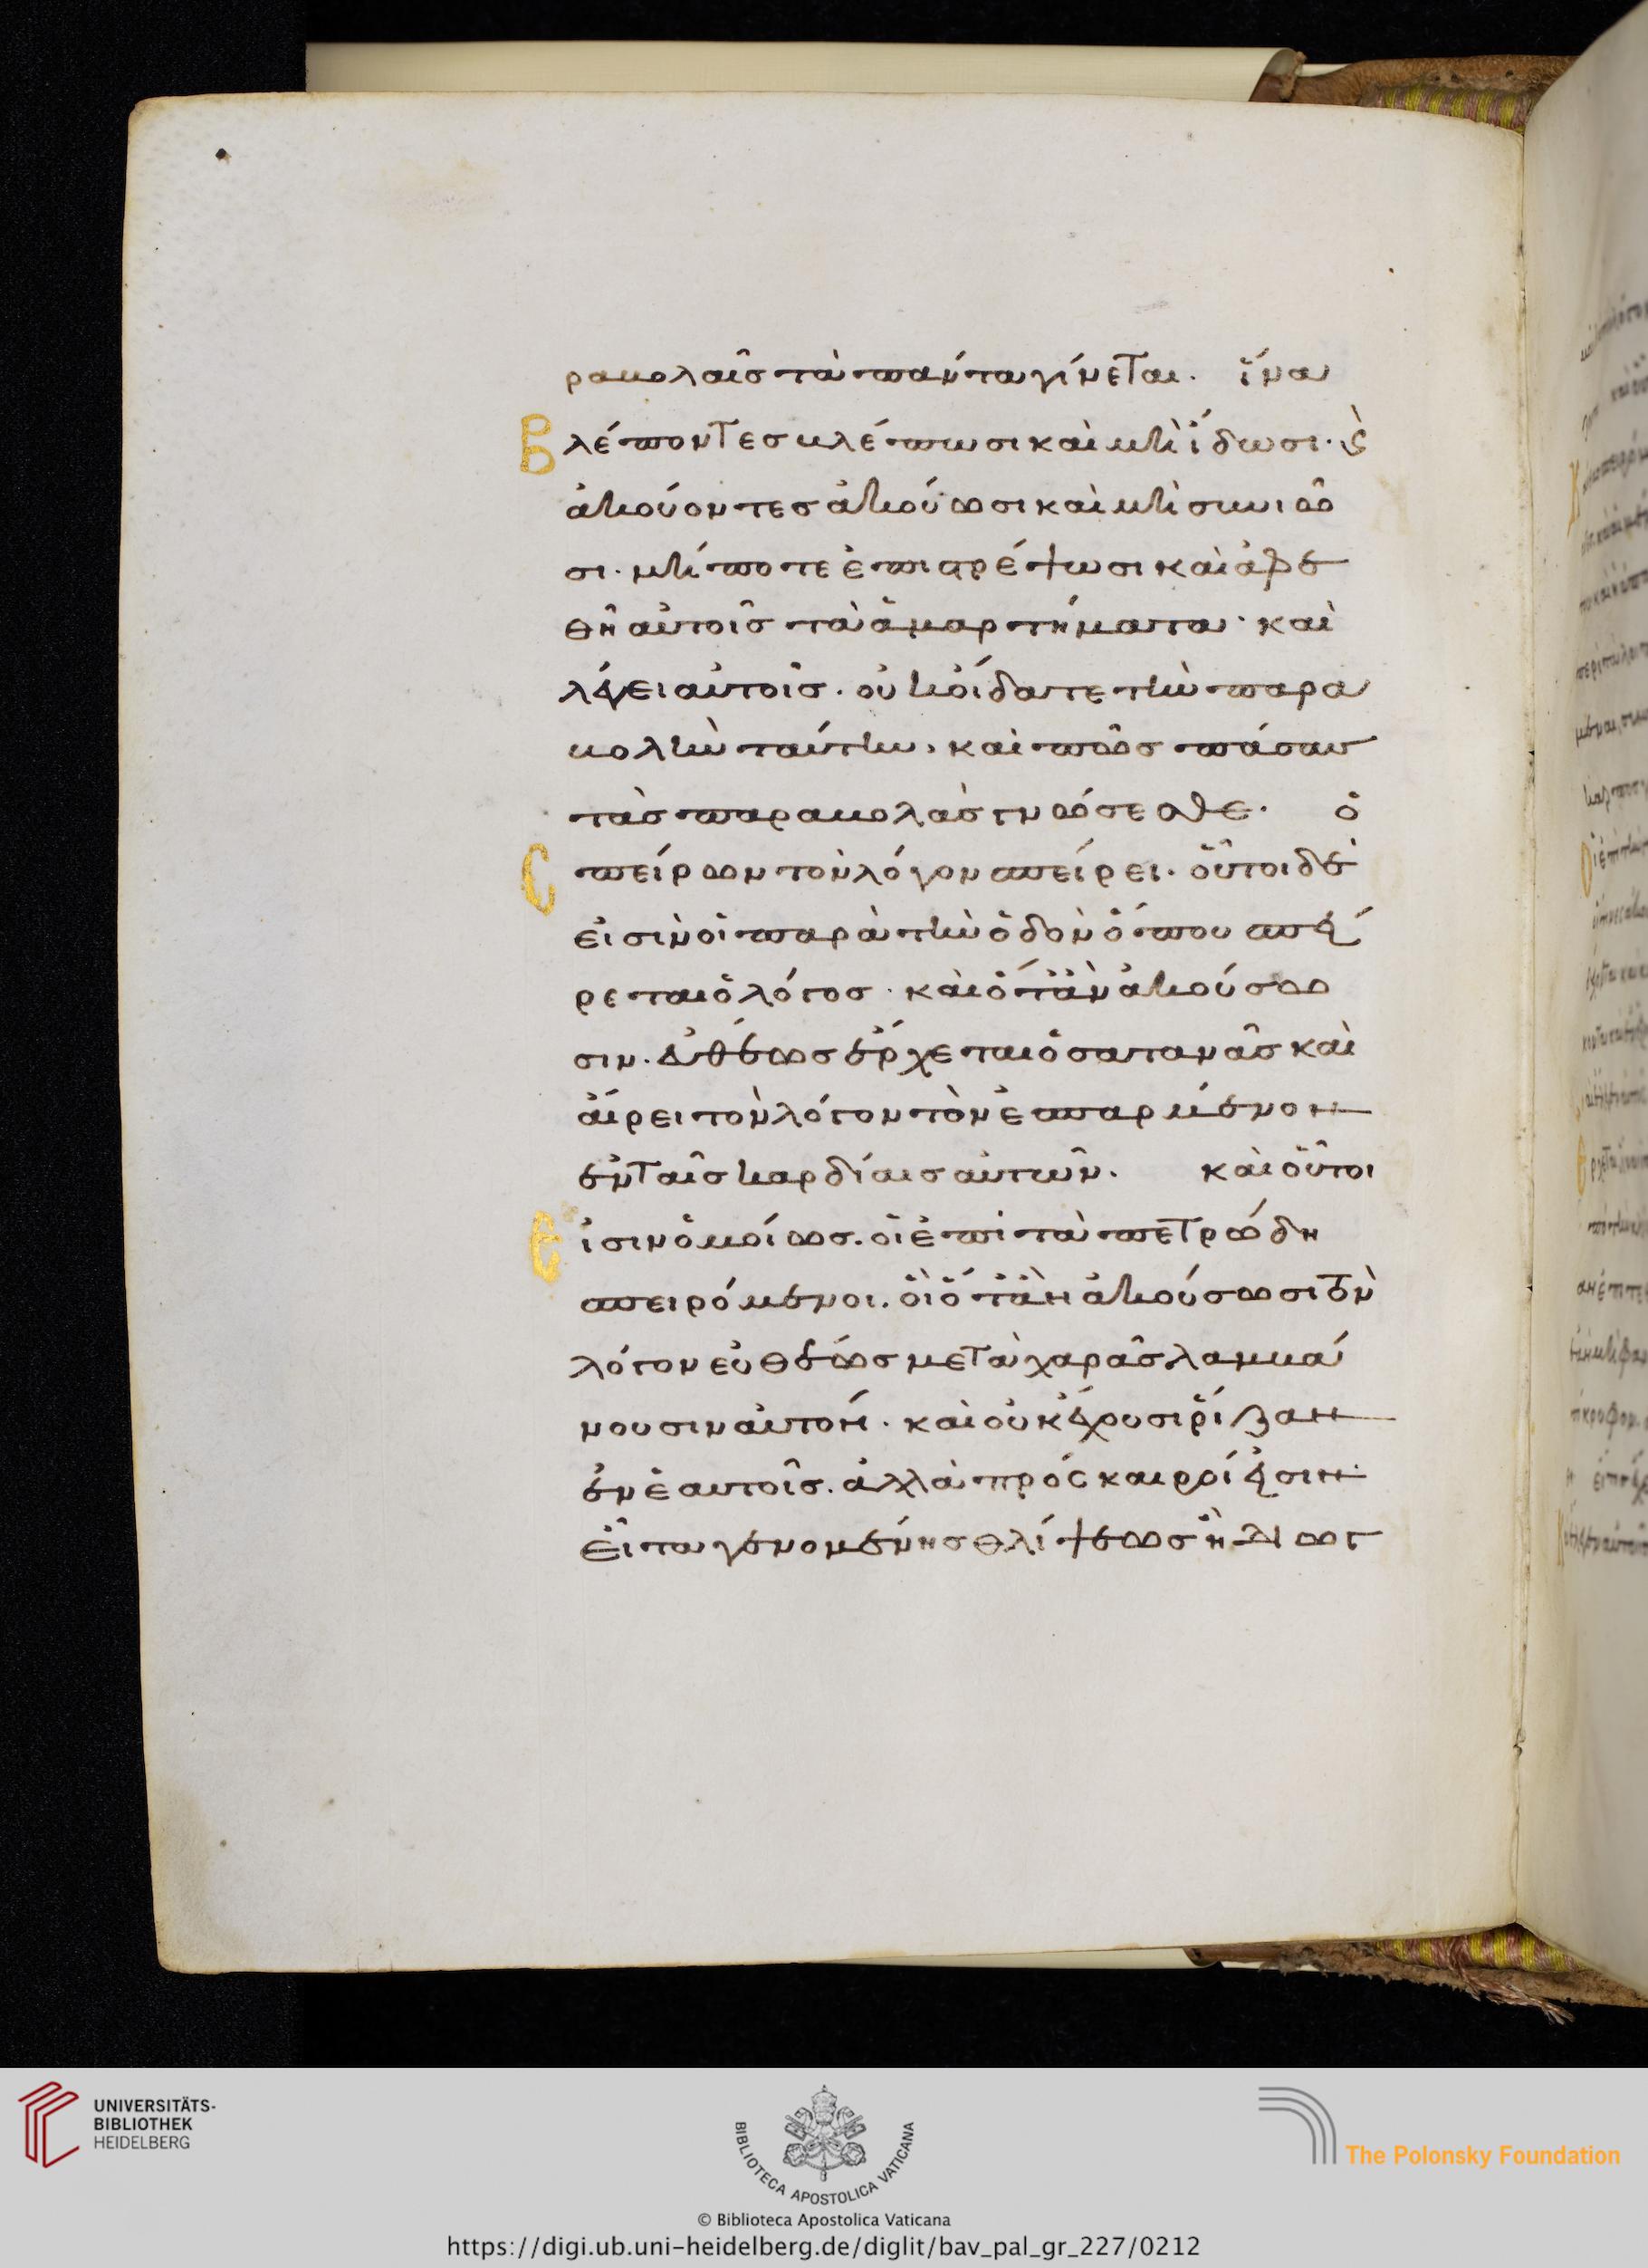 ραβολαῖς τὰ πάντα γίνεται. ἵνα
Βλέποντες βλέπωσι καὶ μὴ ἴδωσι. ϛ̀
ἀκούοντες ἀκούωσι καὶ μὴ συνιῶ
σι. μήποτε ἐπιστρέψωσι καὶ ἀφε
θῆ αὐτοῖς τὰ ἁμαρτήματα. καὶ
λέγει αὐτοῖς. οὐκ οἴδατε τὴν παρα
βολὴν ταύτην. καὶ πῶς πάσας
τὰς παραβολὰς γνώσεσθε. ὁ
Σπείρων τὸν λόγον σπείρει. οὗτοι δέ
εἰσιν οἱ παρὰ τὴν ὁδὸν ὅπου σπεί
ρεται ὁ λόγος. καὶ ὅταν ἀκούσω
σιν. εὐθέως ἔρχεται ὁ σατανᾶς καὶ
αἴρει τὸν λόγον τὸν ἐσπαρμένον
ἐν ταῖς καρδίαις αὐτῶν. καὶ οὗτοι
Εἰσιν ὁμοίως. οἱ ἐπὶ τὰ πετρώδη
σπειρόμενοι. οἳ ὅταν ἀκούσωσι τὸν
λόγον εὐθέως μετὰ χαρᾶς λαμβά
νουσιν αὐτόν. καὶ οὐκ ἔχουσι ῥίζαν
ἐν ἑαυτοῖς. ἀλλὰ πρόσκαιροί εἰσιν.
εἶτα γενομένης θλίψεως ἢ διωγ
UNIVERSITÄTS-
BIBLIOTHEK
HEIDELBERG
BIBLIOTECA APOSTOLICA VATICANA
The Polonsky Foundation
© Biblioteca Apostolica Vaticana
https://digi.ub.uni-heidelberg.de/diglit/bav_pal_gr_227/0212